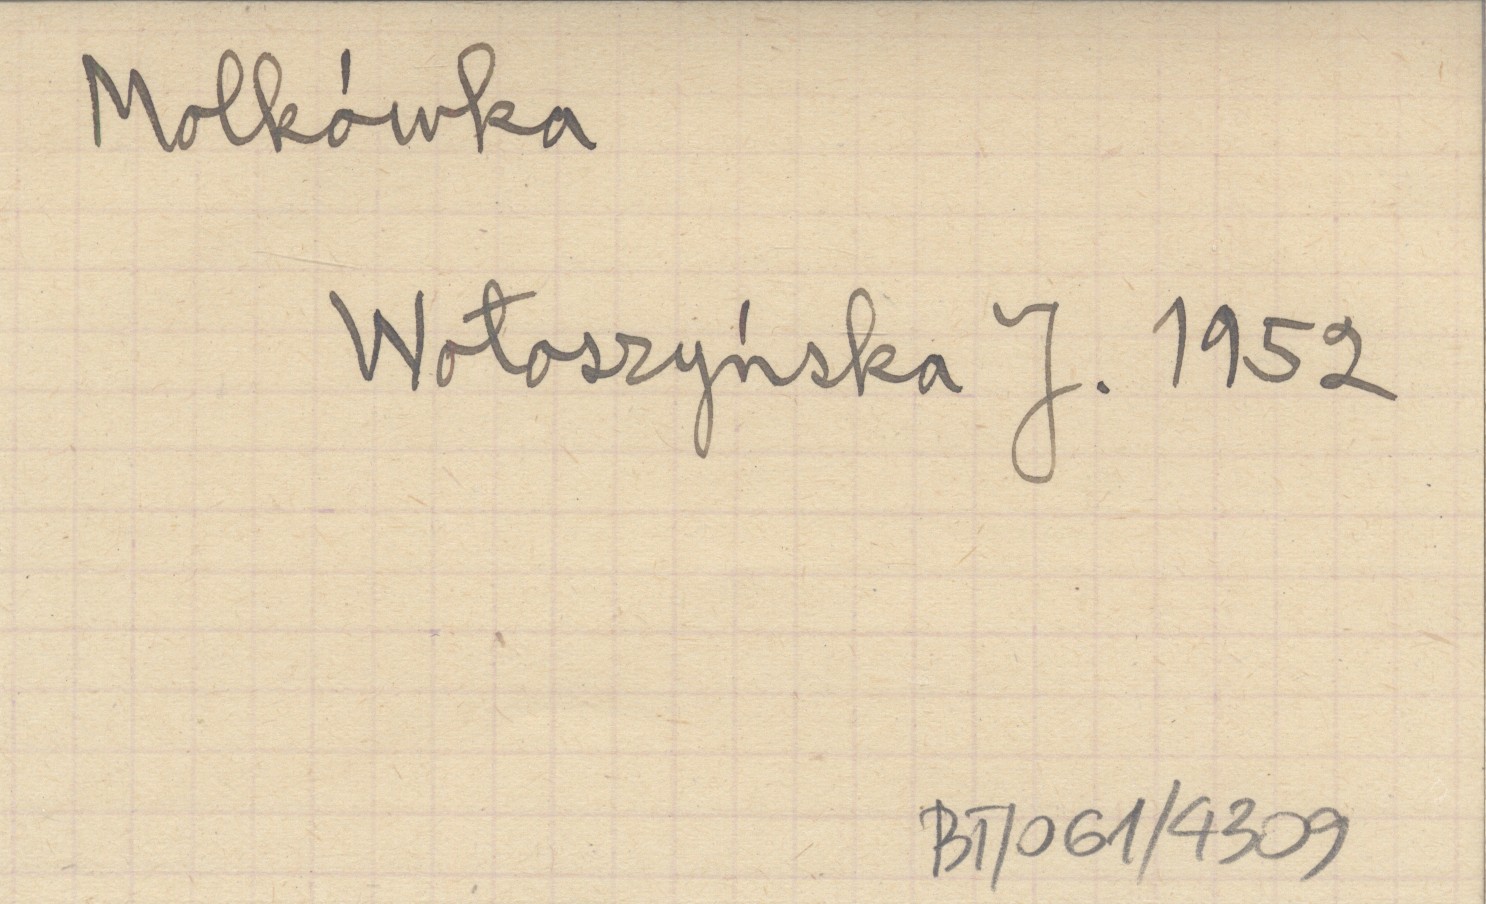 Molkówka
Wołoszyńska J. 1952
BT/061/4309